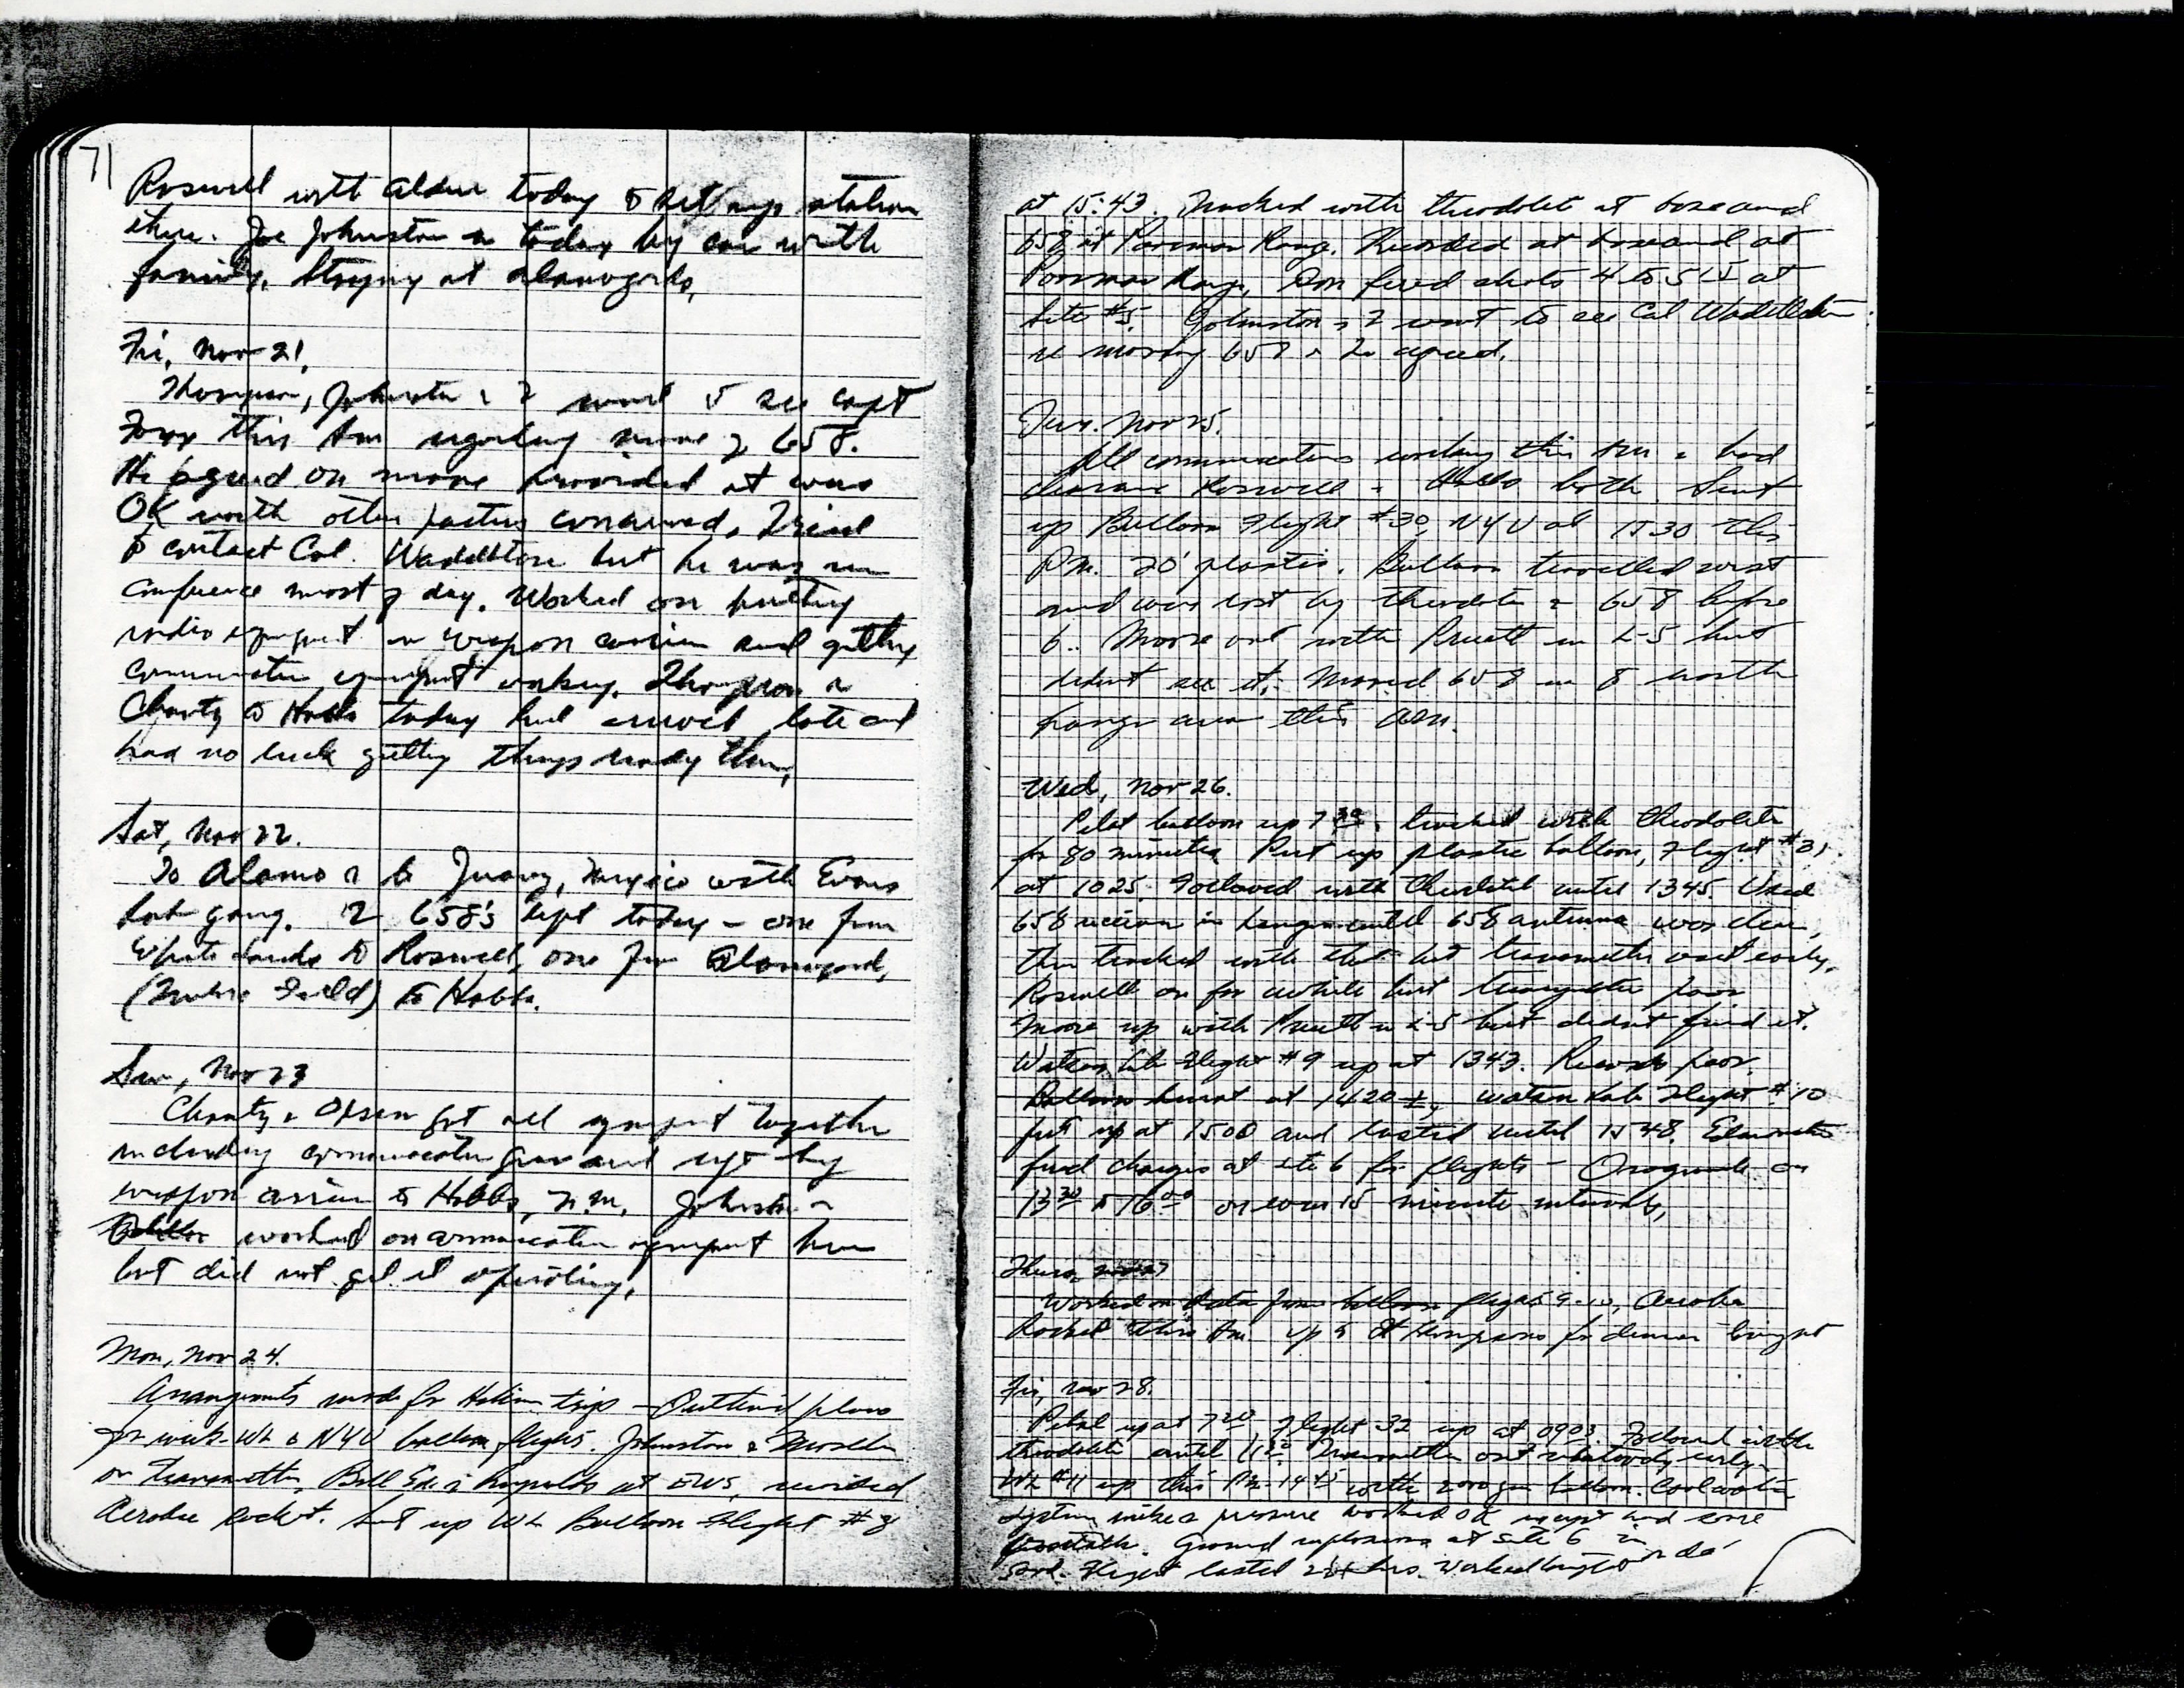 71
Roswell with Alden today to set up station
there. Joe Johnston in today by car with
family. Staying at Alamogordo,
Fri, Nov 21,
Thompson, Johnston & I went to see Capt
this Am regarding move of 658.
He agreed on move provided it was
OK with other parties concerned. Tried
to contact Col. but he was in
conference most of day. Worked on putting
radio equipment in weapon carrier and getting
communication equipment working. Thompson &
Charity to Hobbs today but arrived late and
had no luck getting things ready there,
Sat, Nov 22.
To Alamo & to Juarez, Mexico with Evans
Lab gang. 2 658's left today - one from
White Sands to Roswell, one from Alamogordo,
Field) to Hobbs.
Sun, Nov 23
Charity & Olsen got all equipment together
including communication gear and left by
weapon carrier to Hobbs, N.M. Johnston &
worked on communication equipment here
but did not get it operating.
Mon, Nov 24.
Arrangements made for Helium trips - Outlined plans
for week - WL & NYU balloon flights. Johnston &
on transmitter, Bill Ed. & Reynolds at recorded
Aerobee Rocket. Sent up WL Balloon Flight #8
at 15:43. Tracked with theodolite at base and
658 at Poorman Range. Recorded at base and at
Poorman Range. Don fired shots 4 to 5 15 at
Site #5. Johnston & I went to see Col
re moving 658 & he agreed.
Tues. Nov 25.
All communications working this Am & had
clearance Roswell & Hobbs both. Sent
up Balloon Flight #30, NYU at 1530 this
Pm. 20' plastic. Balloon travelled west
and was lost by theodolite & 658 before
6. Moore out with Pruett in L-5 but
didnt see it. Moved 658 in to north
hangar area this Am.
Wed, Nov 26.
Pilot balloon up 7 30. tracked with theodolite
for 80 minutes. Put up plastic balloon, Flight #31
at 1025. Followed with theodolite until 1345. Used
658 receiver in hangar until 658 antenna was clear,
then tracked with that but transmitter out early.
Roswell on for awhile but transmitter poor
Moore up with Pruett in L-5 but didnt find it.
Watson Lab Flight #9 up at 1343. Records poor.
Balloon burst at 1420 ±. Watson Lab Flight #10
put up at 1500 and lasted until 1548. Edmondston
fired charges at site 6 for flights - Orogrande on
13 30 to 16 00 on even 15 minute intervals,
Thurs, Nov 27
Worked on data from balloon flights 9-10, Aerobee
Rocket this Am. Up to St Thompsons for dinner tonight
Fri, Nov 28.
Pilot up at 7 20. Flight 32 up at 0903. Followed with
theodolite until Transmitter out early.
WL #11 up this Pm - 1445 with 2000 gm balloon.
system pressure worked OK except and some
Ground explosions at Site 6 in
Flight lasted hrs. Worked tonight on